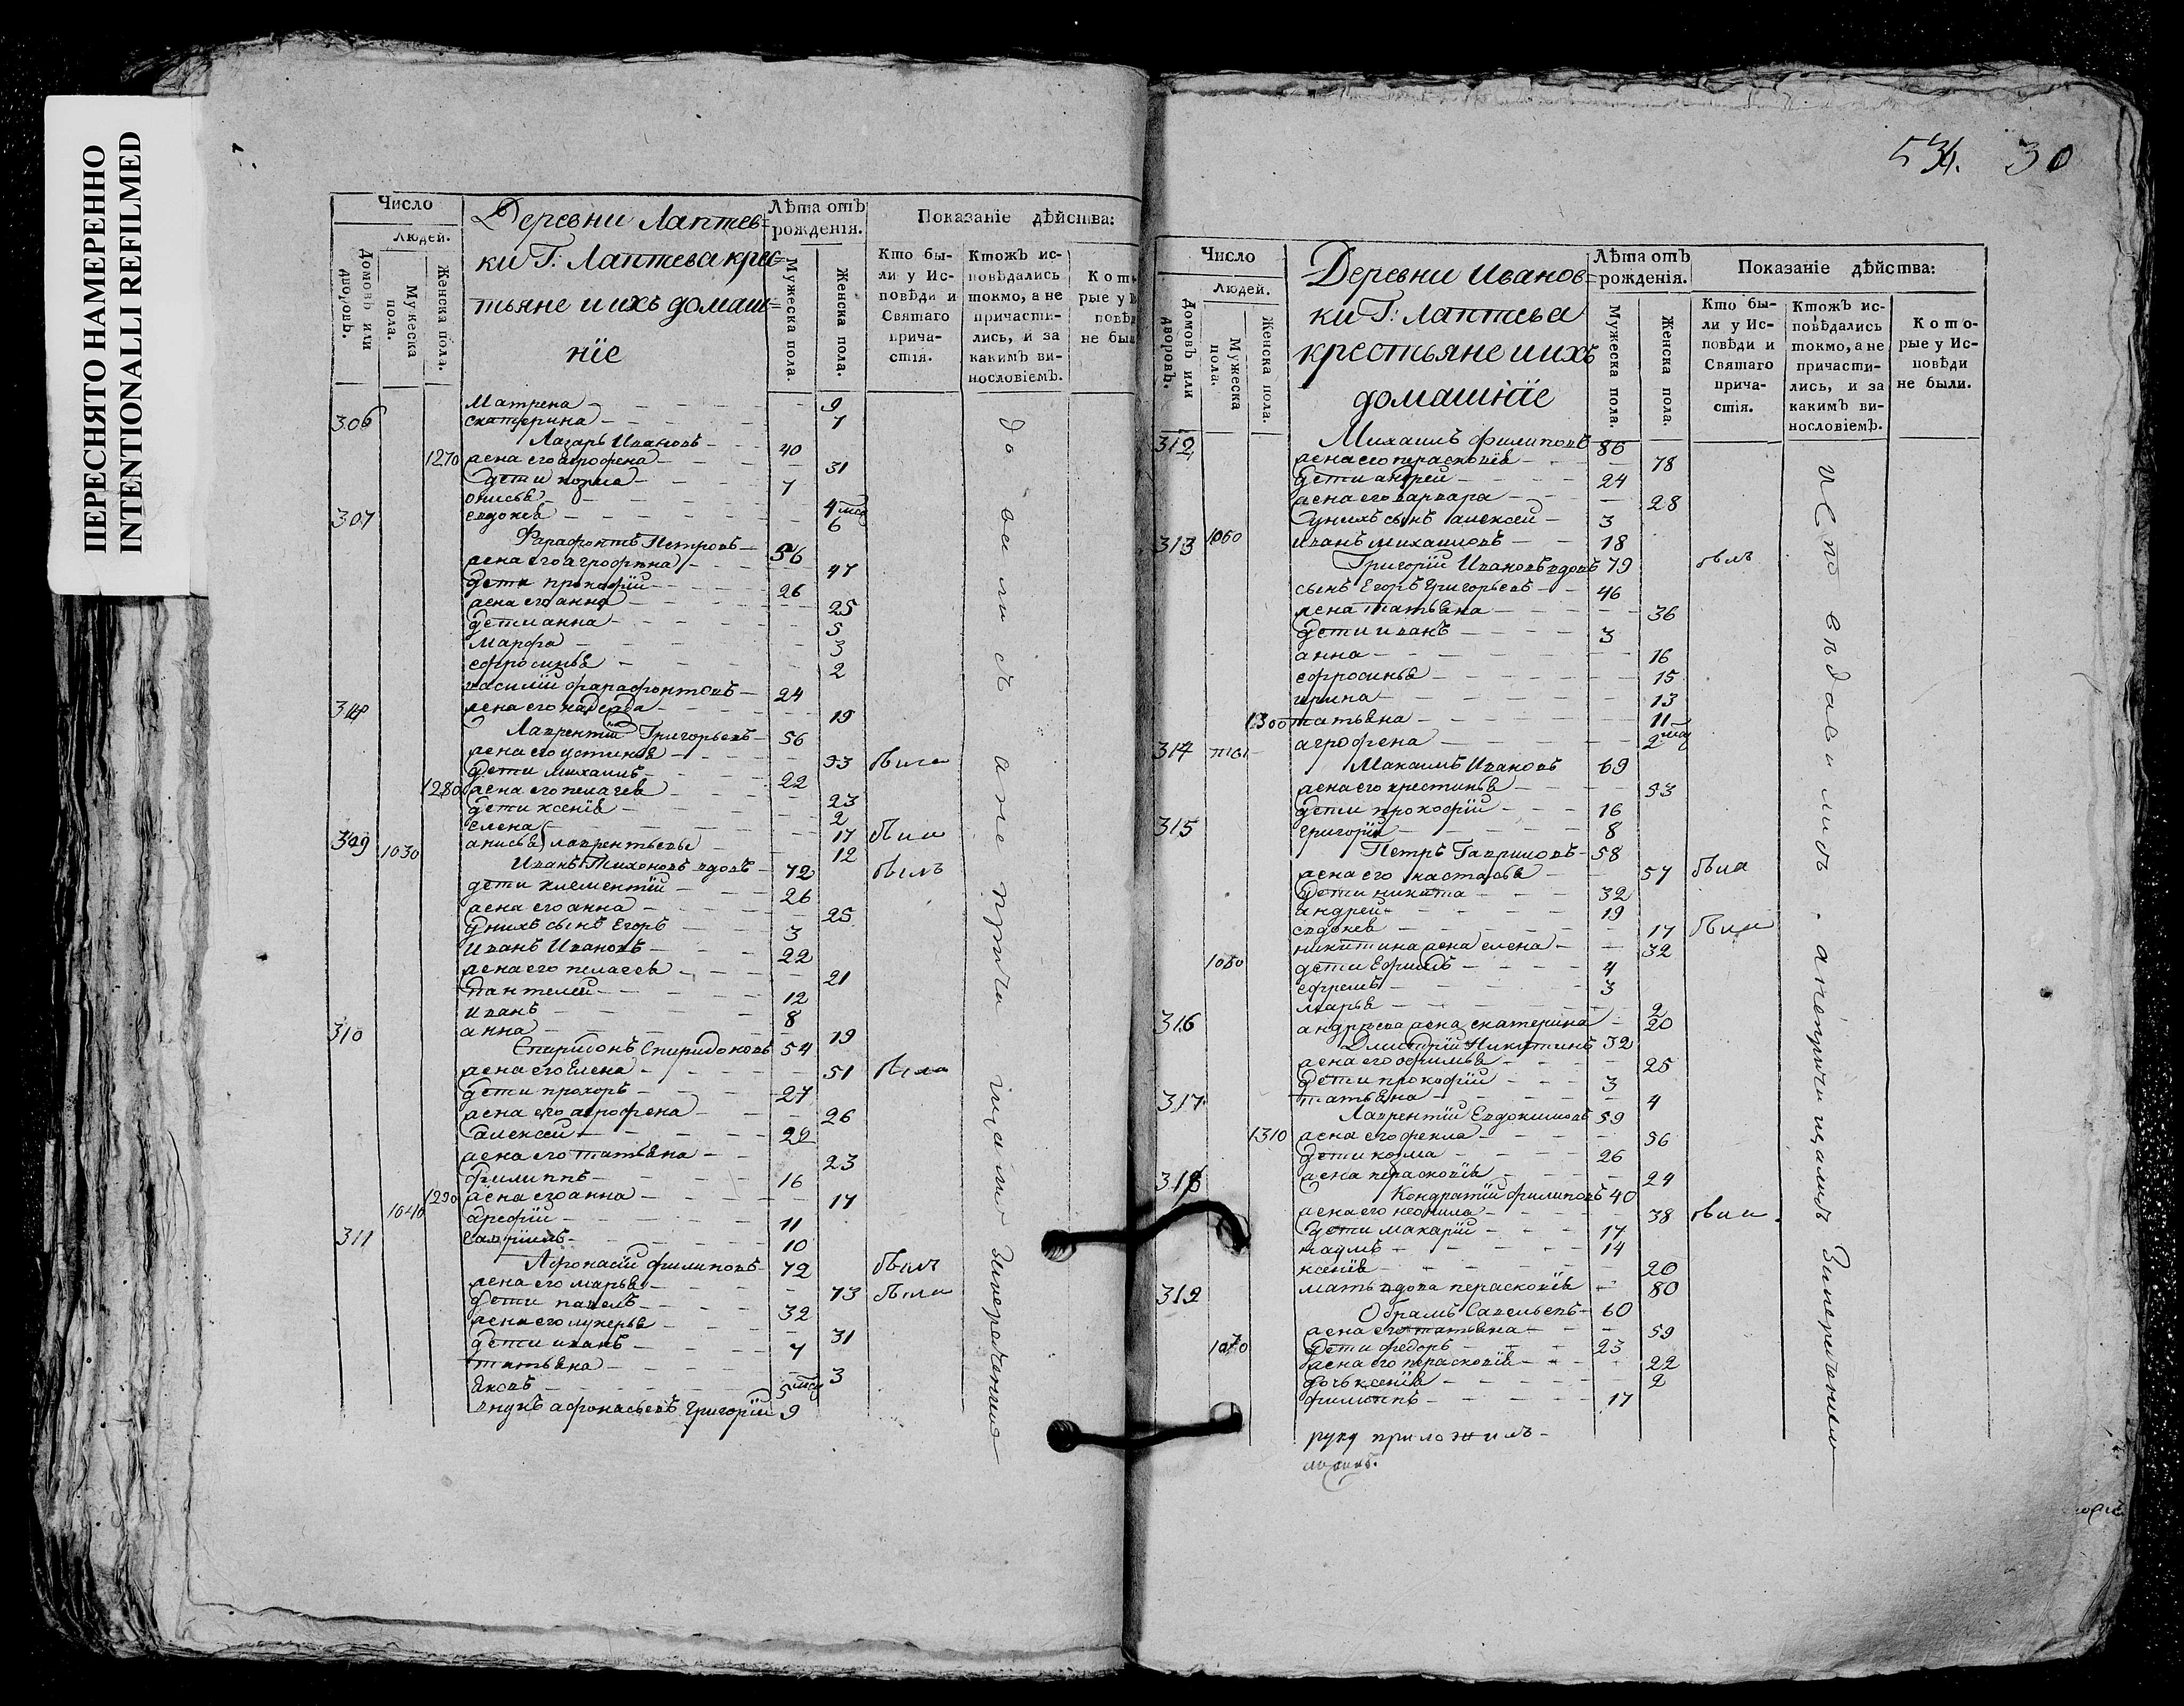 ПЕРЕСНЯТО НАМЕРЕННО
INTENTIONALLI REFILMED
Число
Людей.
Домовъ или дворовъ.
Мужеска пола.
Женска пола.
Деревни Лаптев=
ки Г: Лаптева кре=
тьяне и ихъ домаш=
нїе
Лѣта отъ рожденія.
Мужеска пола.
Женска пола.
Показаніе дѣйства:
Кто бы-
ли у Ис-
повѣди и
Святаго
прича-
стія.
Ктожъ ис-
повѣдались
токмо, а не
причасти-
лись, и за
какимъ ви-
нословіемъ.
Матрена 9
306 екатерина 7
Лазарь Ивановъ 40
1270 жена его агрофена 31
дети козма 7
онисья 4 мсц
307 евдокея 6
Фарафонтъ Петровъ 56
жена его агрофѣна 47
дети прокофїй 26
жена его анна 25
дети анна 5
марфа 3
ефросинья 2
василїй фарафонтовъ 24
308 жена его надежда 19
Лаврентїй Григорьевъ 56
жена его устинья 53 была
дети михаилъ 22
1280 жена его пелагея 23
дети ксенїя 2
елена 17 была
309 1030 анисья лаврентьевы 12
Иванъ Тихоновъ вдовъ 72 былъ
дети клементїй 26
жена его анна 25
у нихъ сынъ Егоръ 3
Иванъ Ивановъ 22
жена его пелагея 21
пантелей 12
иванъ 8
310 анна 19
Спиридонъ Спиридоновъ 54
жена его Елена 51 была
дети прохоръ 27
жена его агрофена 26
алексей 22
жена его татьяна 23
филиппъ 16
1290 жена его анна 17
1040 арефїй 11
311 гаврїилъ 10
Афонасїй филиповъ 72 былъ
жена его марья 73 была
дети павелъ 32
жена его лукерья 31
дети иванъ 7
татьяна 3
яковъ 5 мсц
внукъ афонасьевъ Григорїй 9
534. 30
Число
Людей.
Домовъ или дворовъ.
Мужеска пола.
Женска пола.
Деревни Иванов=
ки Г: Лаптева
крестьяне и ихъ
домашнїе
Лѣта отъ рожденія.
Мужеска пола.
Женска пола.
Показаніе дѣйства:
Кто бы-
ли у Ис-
повѣди и
Святаго
прича-
стія.
Ктожъ ис-
повѣдались
токмо, а не
причасти-
лись, и за
какимъ ви-
нословіемъ.
Кото-
рые у Ис-
повѣди
не были.
312 Михаилъ филиповъ 86
жена его пераскопїя 78
дети андрей 24
жена его варвара 28
у нихъ сынъ алексей 3
313 1050 иванъ михаиловъ 18
Григорїй Ивановъ вдовъ 79 былъ
сынъ Егоръ Григорьевъ 46
жена татьяна 36
дети иванъ 3
анна 16
ефросинья 15
ирина 13
1300 татьяна 11
314 агрофена 2 мсц
Макаимъ Ивановъ 69
жена его хрестинья 53
дети прокофїй 16
315 григорїй 8
Петръ Гавриловъ 58
жена его настасья 57 была
дети никита 32
андрей 19
евдокея 17 была
никитина жена елена 32
1060 дети Ефимъ 4
ефремъ 3
марья 2
316 андрѣева жена екатерина 20
Дмитрїй Никитинъ 32
жена его офимья 25
дети прокофїй 3
317 татьяна 4
Лаврентїй Евдокимовъ 59
1310 жена его фекла 56
дети козма 26
318 жена пераскопїя 24
Кондратїй филиповъ 40
жена его неонила 38 была
дети макарїй 17
наумъ 14
ксенїя 20
319 мать вдова пераскопїя 80
Обрамъ Савельевъ 60
жена его татьяна 59
1070 дети федоръ 23
жена его пераскопїя 22
дочь ксенїя 2
филиппъ 17
исповѣдались а непричищались Зинеречением
руку приложилъ